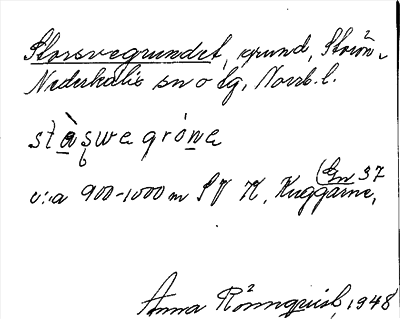 Storsvegrundet, grund, Storön
Nederkalix sn o lg, Norrb. l.
stàswe gróne
c:a 900-1000 m SV K. Kuggärne,
Gn 37
Anna Rönnquist, 1948